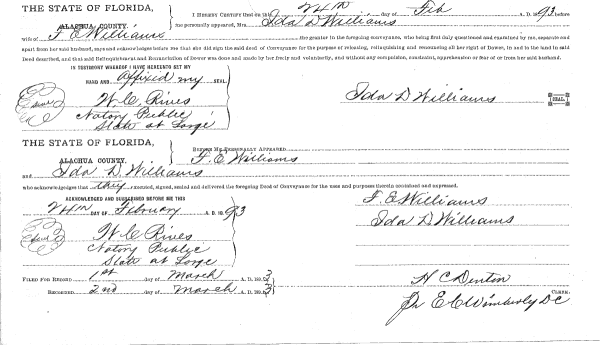 THE STATE OF FLORIDA, I HEREBY CERTIFY that on this 24th Feb A. D. 1893 before
ALACHUA COUNTY. me personally appeared, Mrs. Ida D Williams
wife of F E Williams the grantor in the foregoing conveyance, who being first duly questioned and examined by me, separate and
apart from her said husband, says and acknowledges before me that she did sign the said deed of Conveyance for the purpose of releasing, relinquishing and renouncing all her right of Dower, in and to the land in said
Deed described, and that said Relinquishment and Renunciation of Dower was done and made by her freely and voluntarily, and without any compulsion, constraint, apprehension or fear of or from her said husband.
IN TESTIMONY WHEREOF I HAVE HEREUNTO SET MY
HAND AND Affixed my SEAL
Seal
W. C. Rives Ida D Williams SEAL.
Notary Public
State at Large
THE STATE OF FLORIDA, BEFORE ME PERSONALLY APPEARED
ALACHUA COUNTY. F. E Williams
and Ida D. Williams
who acknowledges that they executed, signed, sealed and delivered the foregoing Deed of Conveyance for the uses and purposes therein contained and expressed.
ACKNOWLEDGED AND SUBSCRIBED BEFORE ME THIS F. E Williams
24th DAY OF February A. D. 1893 Ida D Williams
Seal
W. C Rives
Notary Public
State at Large
FILED FOR RECORD 1st day of March A. D. 1893 H C Denton
RECORDED 2nd day of March A. D. 1893 CLERK.
Pr E. C Wimberly DC